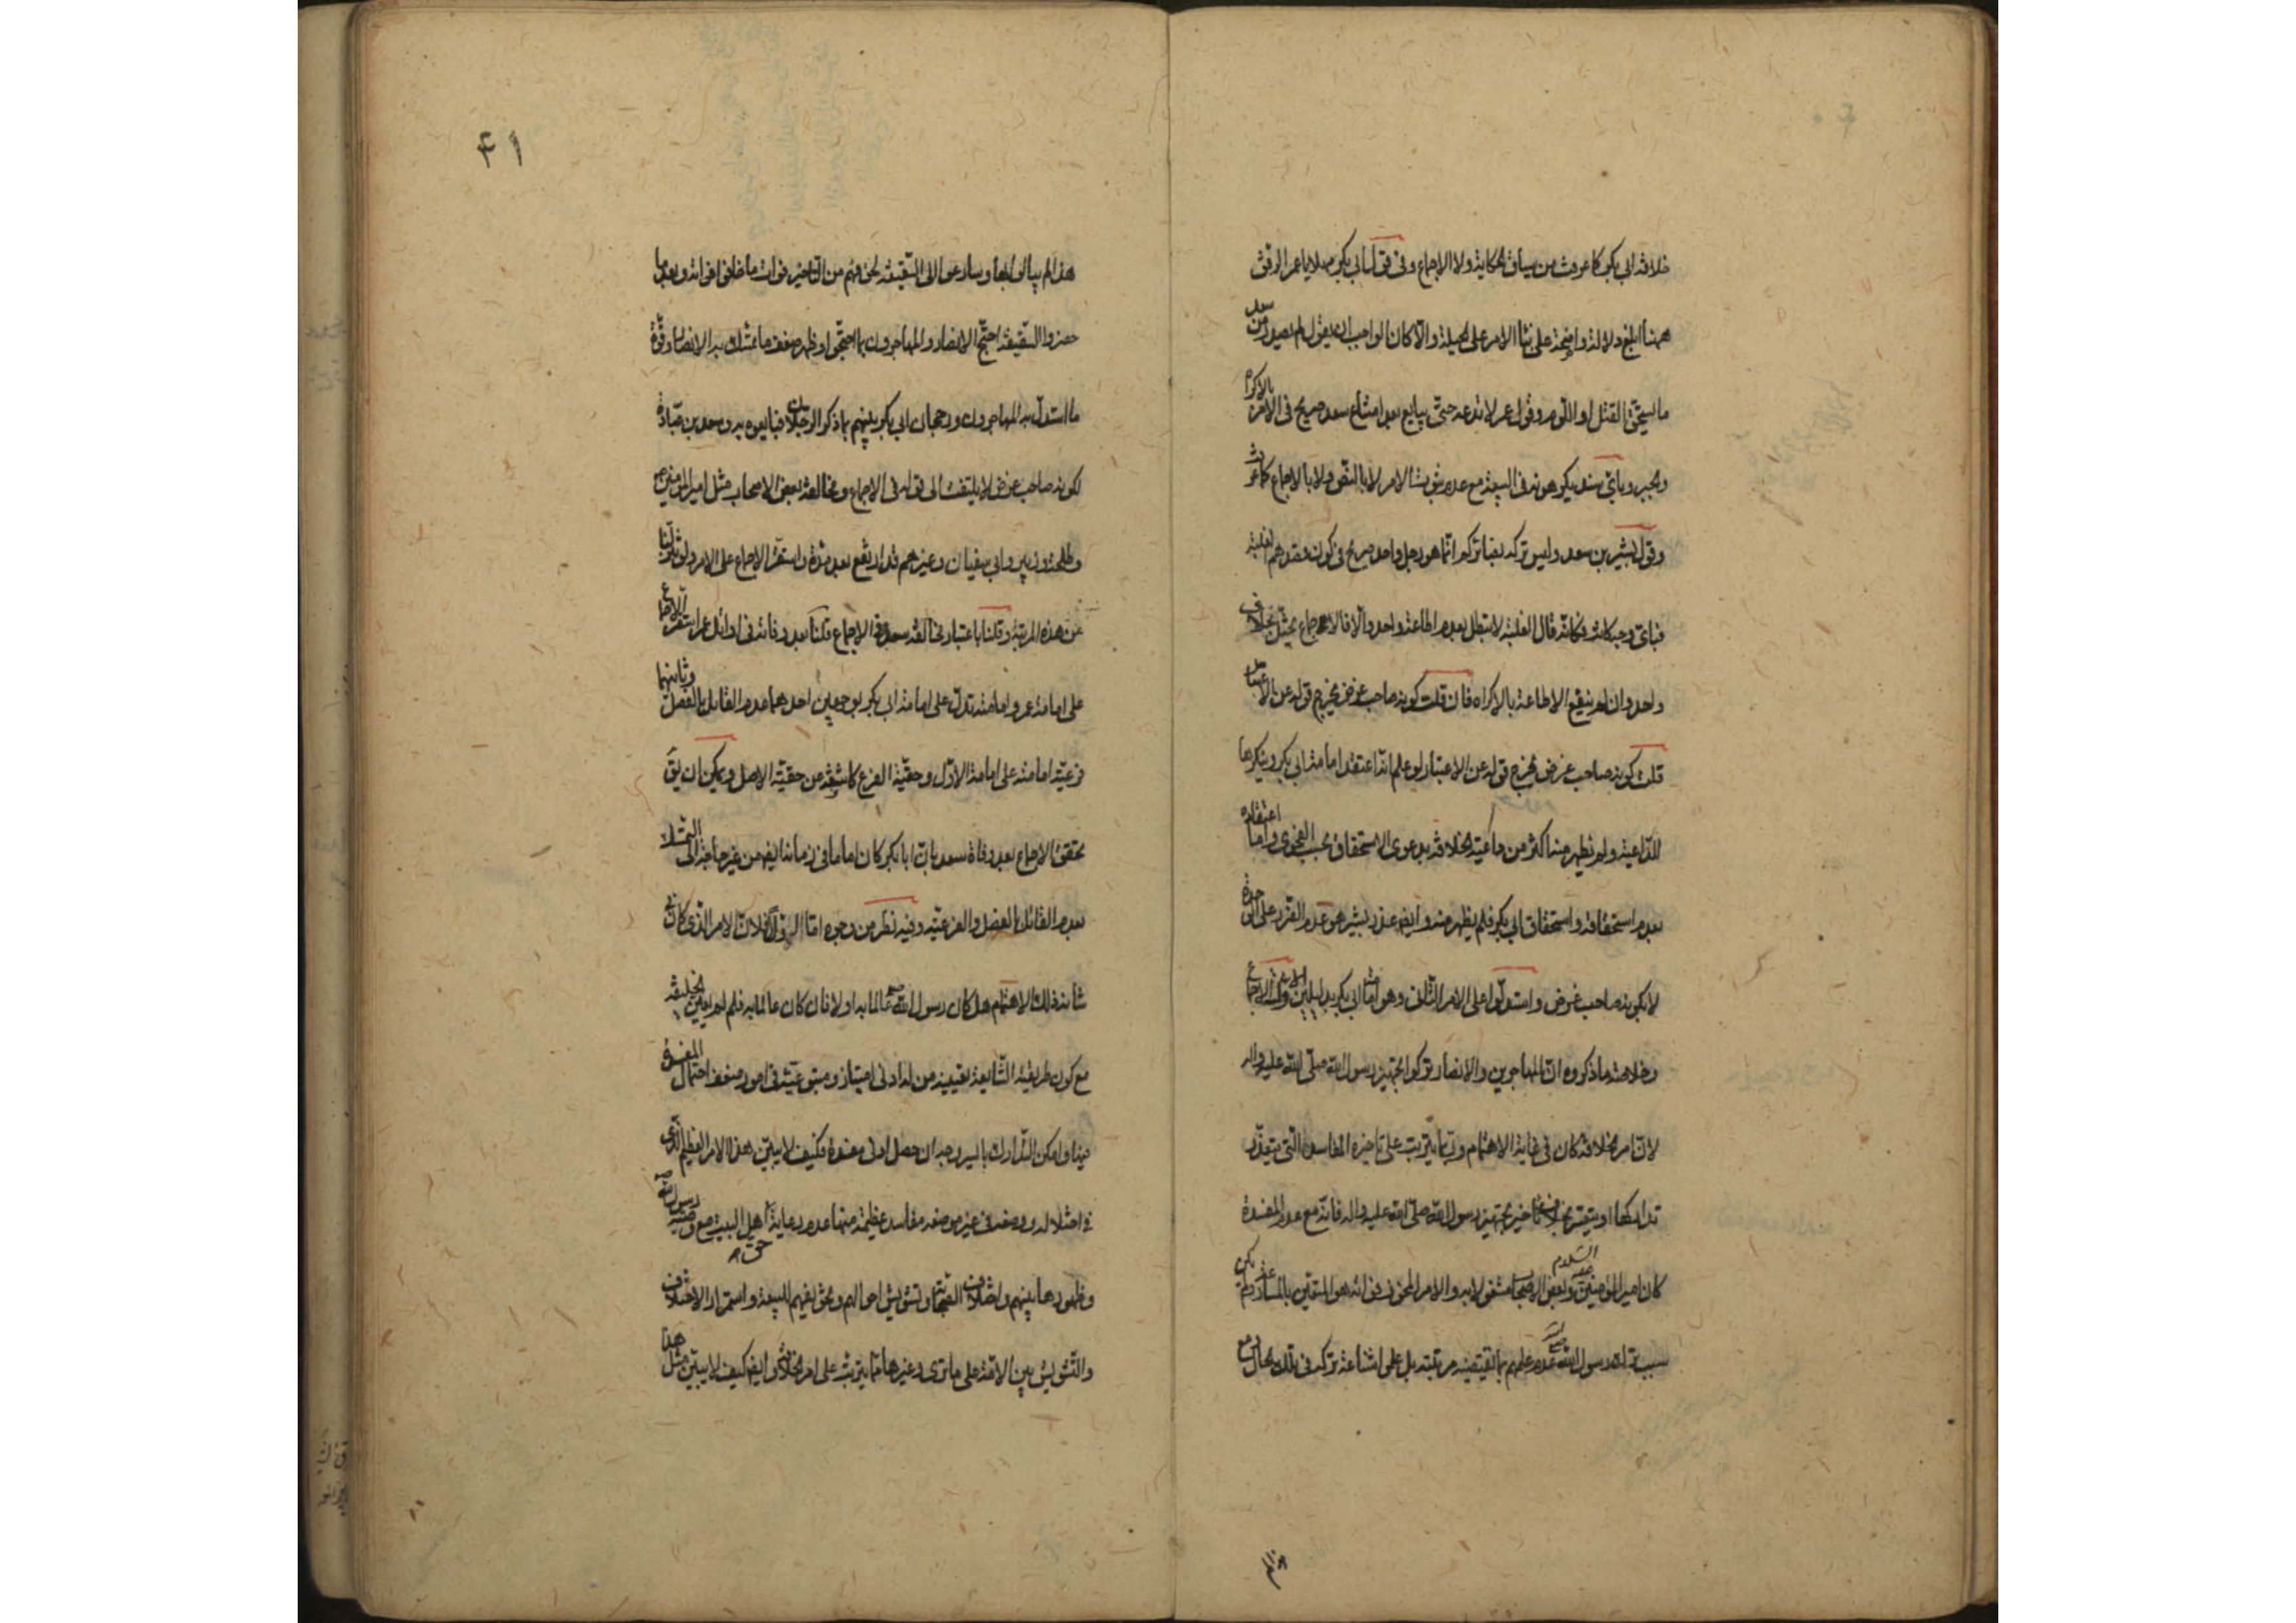 خلافة ابي بكر كما عرفت من سياق الحكاية ولا الاجماع وفي قول ابي بكر مهلا يا عمر الرفق
ههنا ابلغ دلالة واضحة على بناء الامر على الحيلة والا كان الواجب ان يقول لم يصدر من سعد
ما يستحق القتل او اللوم وقول عمر لا تدعه حتى يبايع بعد امتناع سعد صريح في الامر بالاكراه
والجبر وباي سند يكرهونه في البيعة مع عدم ثبوت الامر لا بالنص ولا بالاجماع كما عرفت
وقول بشير بن سعد وليس تركه بضائركم انما هو رجل واحد صريح في كون مقصدهم الغلبة
فباي وجه كانت فكانه قال الغلبة لا تبطل بعدم اطاعة واحد والا فالاجماع يختل بخلاف
واحد وان لم ينفع الاطاعة بالاكراه فان قلت كونه صاحب غرض يخرج قوله عن الاعتبار
قلت كونه صاحب غرض يخرج قوله عن الاعتبار لو علم انه اعتقد امامة ابي بكر وينكرها
للداعية ولم تظهر منه اكثر من داعية الخلافة بدعوى الاستحقاق بحسب الفحوى واما اعتقاده
بعدم استحقاقه واستحقاق ابي بكر فلم يظهر منه وايضا عذر بشير هو عدم الضرر على الوحدة
لا بكونه صاحب غرض واستدلوا على الامر الثاني وهو امامة ابي بكر بدليلين الاول الاجماع
وخلاصة ما ذكروه ان المهاجرين والانصار تركوا تجهيز رسول الله صلى الله عليه واله
لان امر الخلافة كان في غاية الاهتمام وربما يترتب على تاخيره المفاسد التي يتعذر
تداركها او يتعسر بخلاف تاخير تجهيز رسول الله صلى الله عليه واله فانه مع عدم المفسدة
كان امير المؤمنين عليه السلام وبعض الاصحاب مشغولا به والامر المخوف فواته هو المتقين بالمبادرة لم يكن
سبب ترك رسول الله عدم علمهم بالقيتضيه مرتبته بل على شناعة تركه في تلك الحال ومع
هذا لم يبالوا بها وسارعوا الى السقيفة لخوفهم من التاخير فوات ما خافوا فواته وبعد ما
حضروا السقيفة احتج الانصار والمهاجرون بما احتجوا وظهر ضعف ما تمسك به الانصار وقوة
ما استدل به المهاجرون ورجحان ابي بكر بينهم بما ذكر الرجلان فبايعوه به وسعد بن عبادة
لكونه صاحب غرض لا يلتفت الى قوله في الاجماع ومخالفة بعض الاصحاب مثل امير المؤمنين
وطلحة وزبير وابي سفيان وغيرهم قد ارتفع بعد مدة واستقر الاجماع على الامر ولو تنزلنا
عن هذه المرتبة وقلنا باعتبار مخالفة سعد في الاجماع قلنا بعد وفاته في اوائل عمر استقر الاجماع
على امامة عمر وامامته تدل على امامة ابي بكر بوجهين احدهما عدم القائل بالفصل وثانيهما
فرعية امامته على امامة الاول وحقية الفرع كاشفة عن حقية الاصل ويمكن ان يق
تحقق الاجماع بعد وفاة سعد بان ابا بكر كان اماما في زمانه ايضا من غير حاجة الى التمسك
بعدم القائل بالفصل والفرعية وفيه نظر من وجوه اما الاول فلان الامر الذي كان في
شانه ذلك الاهتمام هل كان رسول الله عالما به او لا فان كان عالما به فلم لم يعين الخليفة
مع كون طريقته الشايعة تعيينه من له ادنى امتياز ومتبوعيته في امور ضعف احتمال المفسدة
فيها وامكن التدارك باليسر وجه ان حصل ادنى مفسدة فكيف لا يبين هذا الامر العظيم الذي
في اختلاله ووضعه في غير موضعه مفاسد عظيمة منها عدم رعاية حق اهل البيت مع وصية رسول الله
وظهورها بينهم واختلاف الصحابة وتشويش احوالهم وتحويفهم للبيعة واستمرار الاختلاف
والتشويش بين الامة على ما ترى وغيرها مما يترتب على امر الخلافة وايضا كيف لا يبين مثل هذا
۴۱